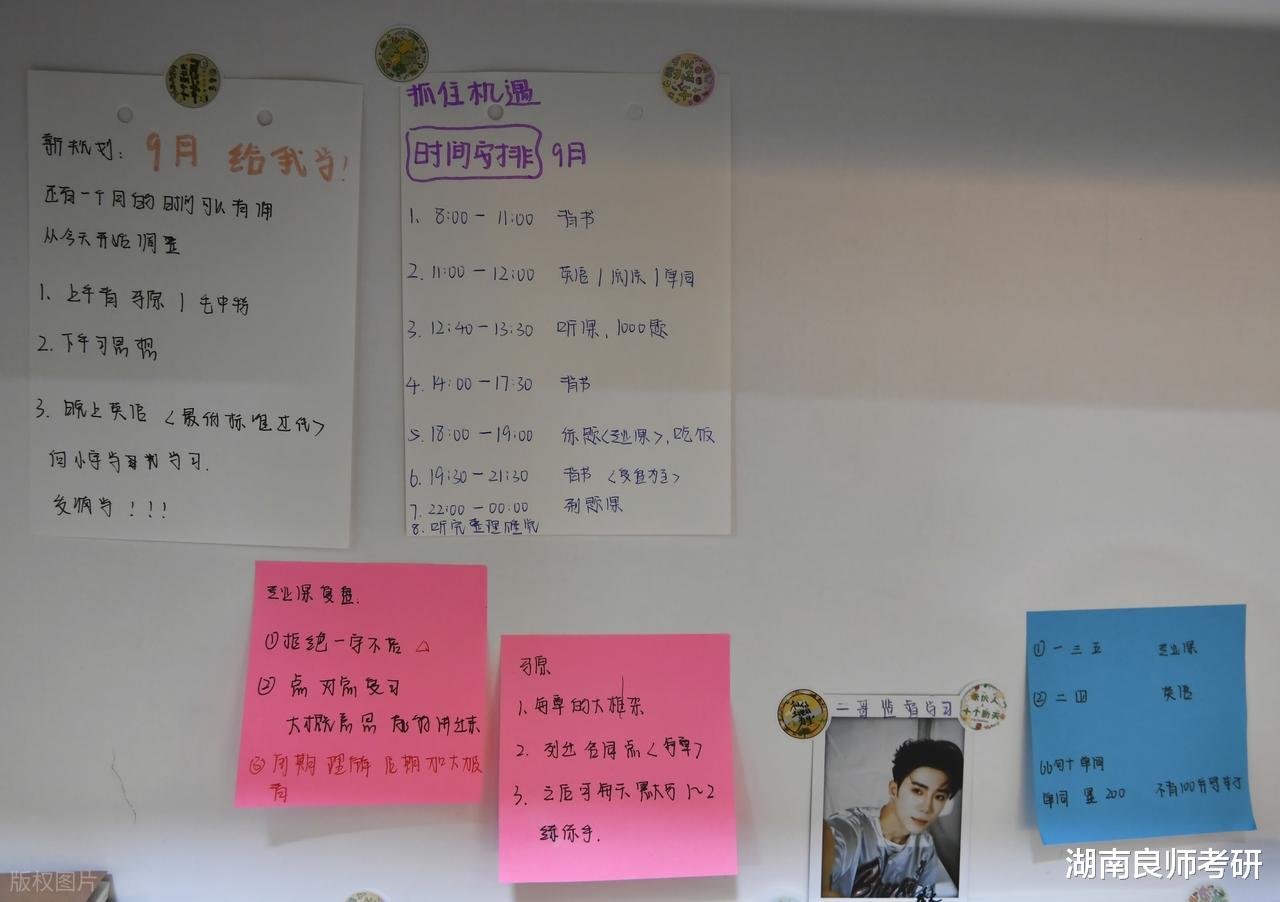 新规划: 9月 给我学!
还有一个月的时间可以有用
从今天开始调整
1. 上午背 马原 | 毛中特
2. 下午习思想
3. 晚上英语 <最低标准过线>
向小宇学习
发疯学!!!
抓住机遇
时间安排 9月
1、8:00 — 11:00 背书
2. 11:00 — 12:00 英语 | 阅读 | 单词
3. 12:40 — 13:30 听课, 1000题
4. 14:00 — 17:30 背书
5. 18:00 — 19:00 <专业课>, 吃饭
6. 19:30 — 21:30 背书
7. 22:00 — 00:00 刷题课
8. 听完整理睡觉
专业课复盘.
① 拒绝一字不落 △
② 点对点复习
③ 前期理解 后期加大版
背
马原
1. 每章的大框架
2. 列出 <每章>
3. 之后可每天 1~2
练练手.
① 一 三 五 专业课
② 二 四 英语
66句+单词
单词 200
二哥监督学习
版权图片
湖南良师考研